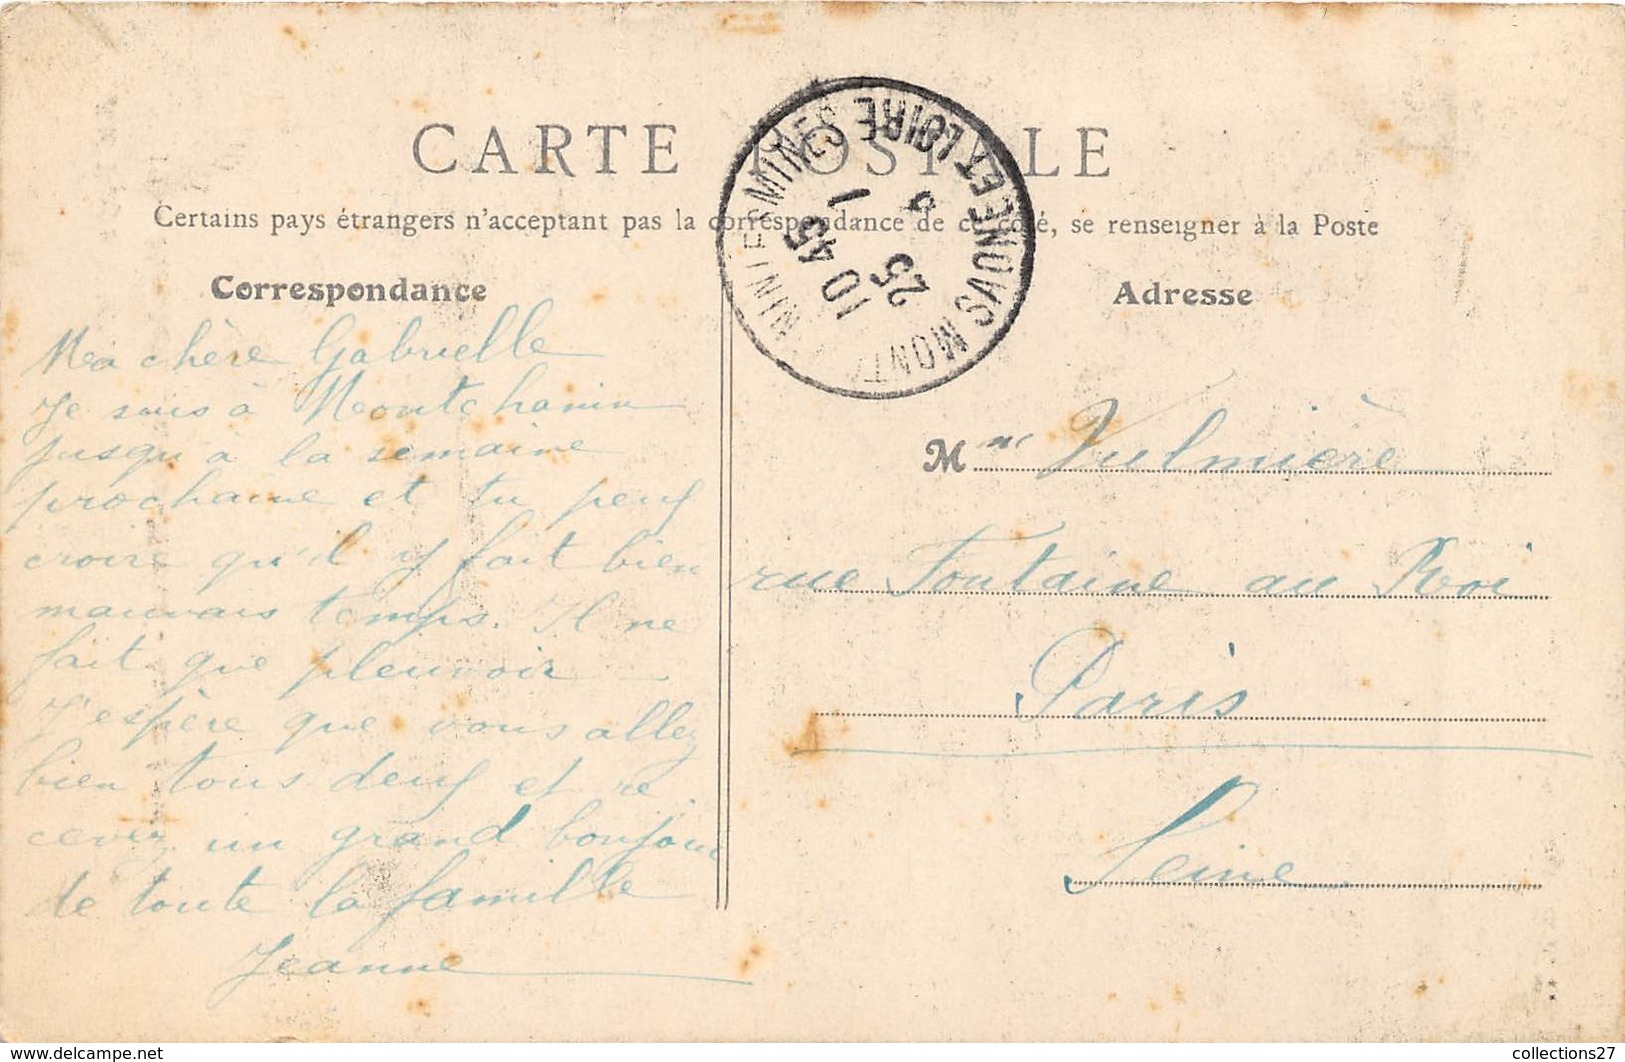 CARTE POSTALE
Certains pays étrangers n'acceptant pas la correspondance de ce côté, se renseigner à la Poste
Correspondance
Ma chère Gabrielle
Je suis à Montchanin
jusqu'à la semaine
prochaine et tu peux
croire qu'il y fait bien
mauvais temps. Il ne
fait que pleuvoir
J'espère que vous allez
bien tous deux et re
cevez un grand bonjour
de toute la famille
Jeanne
SAONE ET LOIRE
10 45
25
Adresse
Mme Vulmière
rue Fontaine au Roi
Paris
Seine
www.delcampe.net
collections27